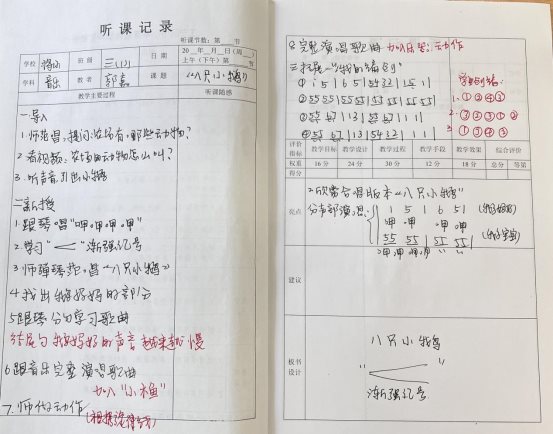 听课记录
听课节数：第 节
学校 班级 三(1) 日期 20 年 月 日(周 ) 上午(下午)第 节
学科 音乐 教者 郭嘉 课题 《八只小鹅》
教学主要过程 听课随感
一.导入
1.师范唱,提问:农场有哪些动物?
2.看视频:农场的动物怎么叫?
3.听声音,引出小鹅
二.新授
1.跟琴唱"呷呷呷呷"
2.学习" "渐强记号
3.师弹琴范唱《八只小鹅》
4.找出鹅妈妈的部分
5.跟琴分句学习歌曲
结尾句鹅妈妈的声音越来越慢
6.跟音乐完整演唱歌曲
加入
7.师代动作
8.完整演唱歌曲 加乐器;动作
三.拓展
① 1 5 1 6 5 5432 15 1
② 55 55 55 55 55 55 55 55
1. ①②④③
3. ①③④③
评价指标 教学目标 教学设计 教学过程 教学手段 教学效果 综合评价
权重 16分 24分 30分 12分 18分 总分 等第
得分
亮点
2.欣赏合唱版本《八只小鹅》
分声部演唱: 1 5 1 6 5 1 (鹅妈妈)
呷 呷 呷
55 55 55 55 (鹅宝宝)
呷呷 呷呷
建议
板书设计
八只小鹅
" "
渐强记号